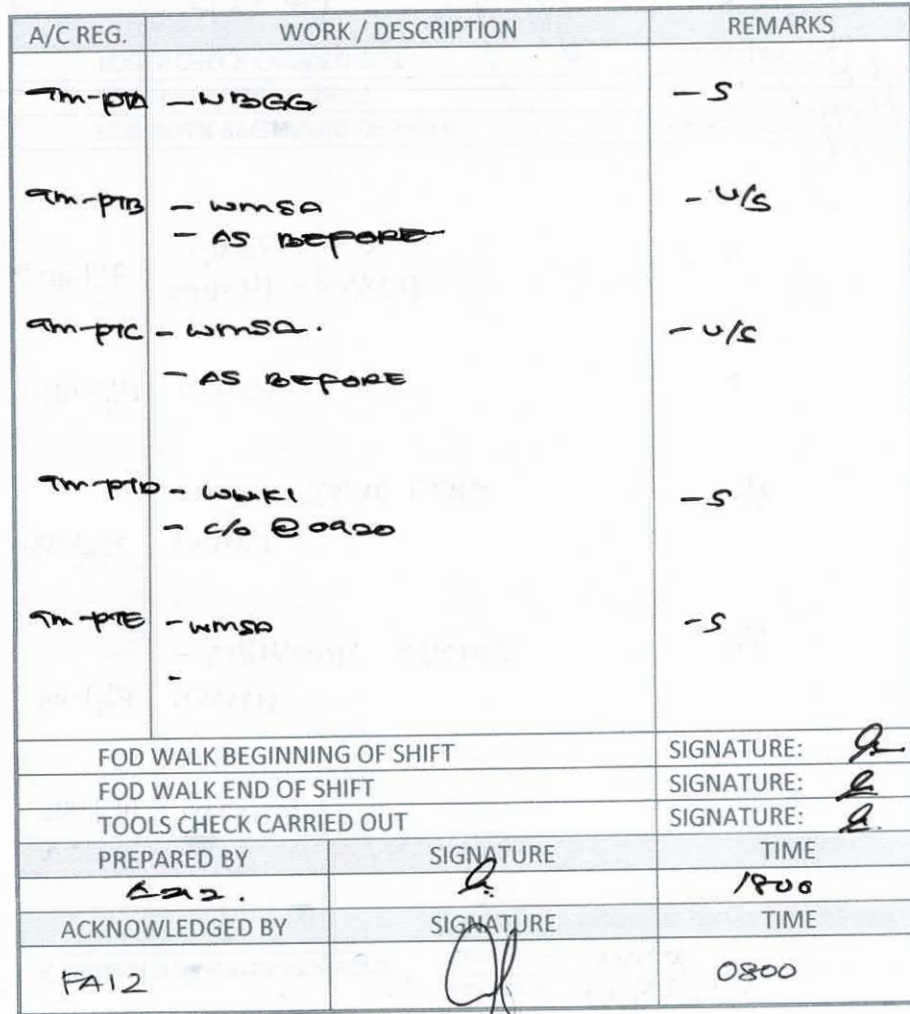 A/C REG. WORK / DESCRIPTION REMARKS
9m-PTA - WBGG - S
9m-PTB - WMSA - U/S
- AS BEFORE
9m-PTC - WMSA. - U/S
- AS BEFORE
9m-PTD - WMKI - S
- c/o @ 0920
9m-PTE - WMSA - S
-
FOD WALK BEGINNING OF SHIFT SIGNATURE:
FOD WALK END OF SHIFT SIGNATURE:
TOOLS CHECK CARRIED OUT SIGNATURE:
PREPARED BY SIGNATURE TIME
1800
ACKNOWLEDGED BY SIGNATURE TIME
FAIZ 0800